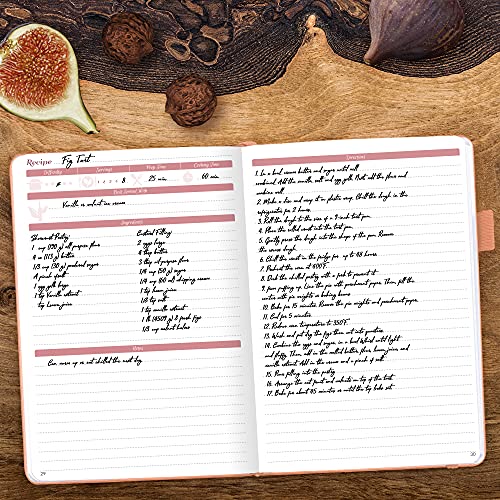 Recipe Fig Tart
Difficulty Servings Prep Time Cooking Time
1 2 4 6 8 25 min 60 min
Best Served With
Vanilla or walnut ice cream
Ingredients
Shortcrust Pastry:
1 cup (120 g) all purpose flour
4 oz (113 g) butter
1/3 cup (30 g) powdered sugar
A pinch salt
1 egg yolk
1 tsp Vanilla extract
1 tsp lemon juice
Custard Filling:
2 eggs
4 tbsp butter
3 tbsp all purpose flour
1/4 cup (50 g) sugar
1/4 cup (60 ml) whipping cream
1 tsp lemon juice
1/4 tsp salt
1 tsp vanilla extract
1 lb (450 g) 2 fresh figs
1/3 cup walnut halves
Notes
Can serve up or eat chilled the next day.
29
Directions
1. In a bowl cream butter and sugar until well
combined. Add the vanilla, salt and egg yolk. Next add the flour and
combine well.
2. Make a disc and wrap it in plastic wrap. Chill the dough in the
refrigerator for 2 hours.
3. Roll the dough to the size of a 9-inch tart pan.
4. Place the rolled crust in the tart pan.
5. Gently press the dough into the shape of the pan. Remove
the excess.
6. Chill the crust in the fridge for up to 48 hours.
7. Preheat the oven at 400°F.
8. Dock the chilled pastry with a fork to prevent it
from puffing up. Line the pie with parchment paper. Then, fill the
centre with pie weights or baking beans.
10. Bake for 15 minutes. Remove the pie weights and parchment paper.
11. Cool for 5 minutes.
12. Reduce oven temperature to 350°F.
13. Wash and pat dry the figs then cut into quarters.
14. Combine the eggs and sugar in a bowl. Whisk until light
and fluffy. Then add in the melted butter, flour, lemon juice, and
vanilla extract. Add in the cream and a pinch of salt.
15. Pour filling into the pastry.
16. Arrange the cut fruit and walnuts on top of the tart.
17. Bake for about 45 minutes or until the top looks set.
30